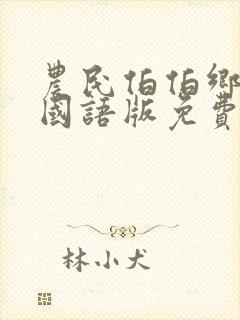 農民伯伯鄉
國語版免費
林小犬